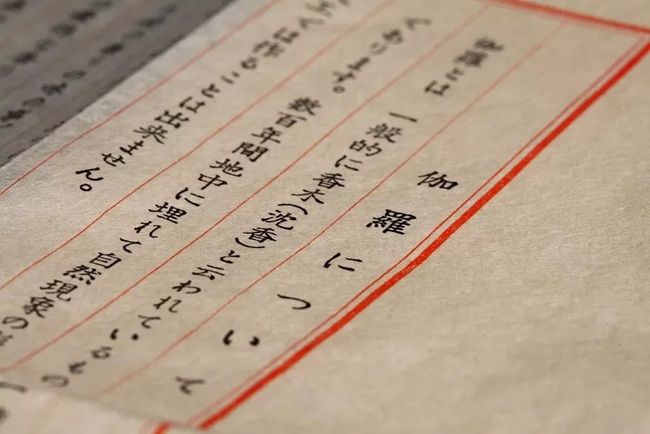 伽羅について
伽羅とは 一般的に香木(沈香)と云われているもの
であります。数百年間地中に埋れて自然現象の
工では作ることは出来ません。